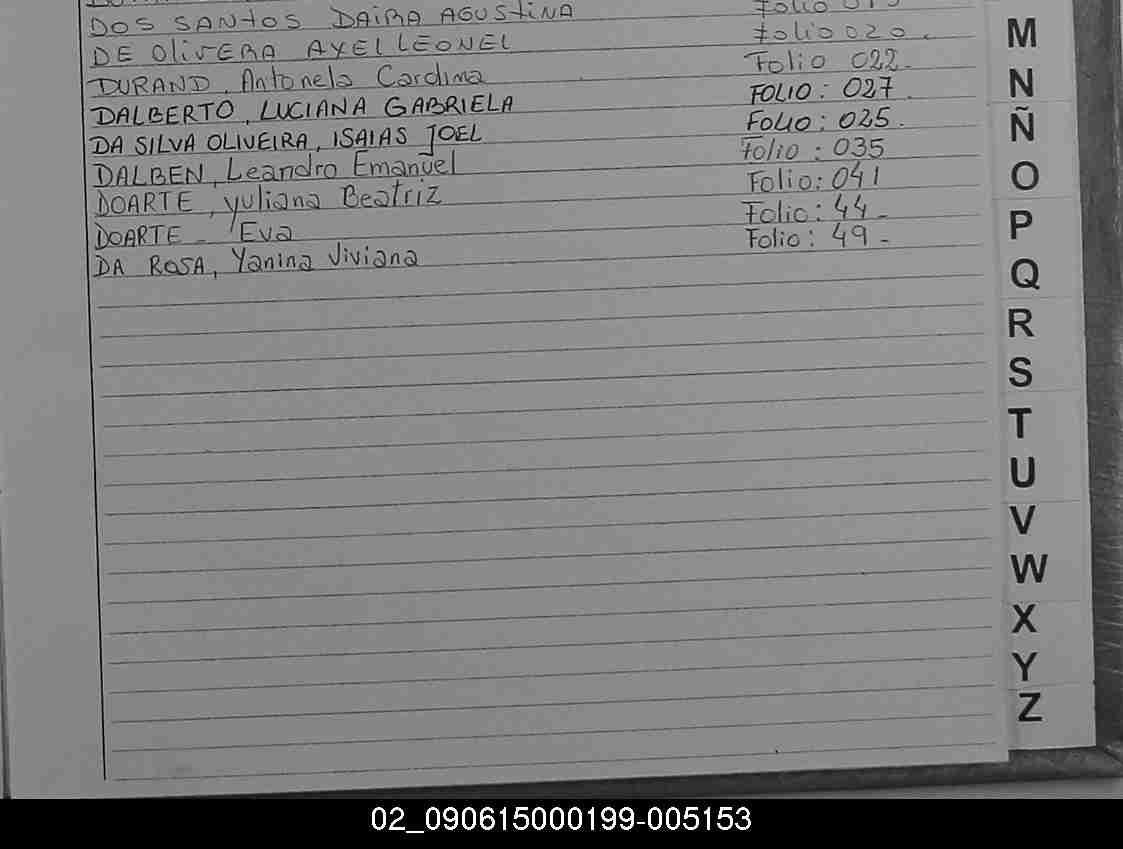 DOS SANTOS DAIRA AGUSTINA Folio
DE OliVERA AXEL LEONEL Folio 020.
DURAND, Antonela Carolina Folio 022.
DALBERTO, LUCIANA GABRIELA FOLIO: 027.
DA SILVA OLIVEIRA, ISAIAS JOEL FOLIO: 025.
DALBEN, Leandro Emanuel Folio: 035
DOARTE, yuliana Beatriz Folio: 041
DOARTE - Eva Folio: 44 -
DA ROSA, Yanina Viviana Folio: 49 -
M
N
Ñ
O
P
Q
R
S
T
U
V
W
X
Y
Z
02_090615000199-005153